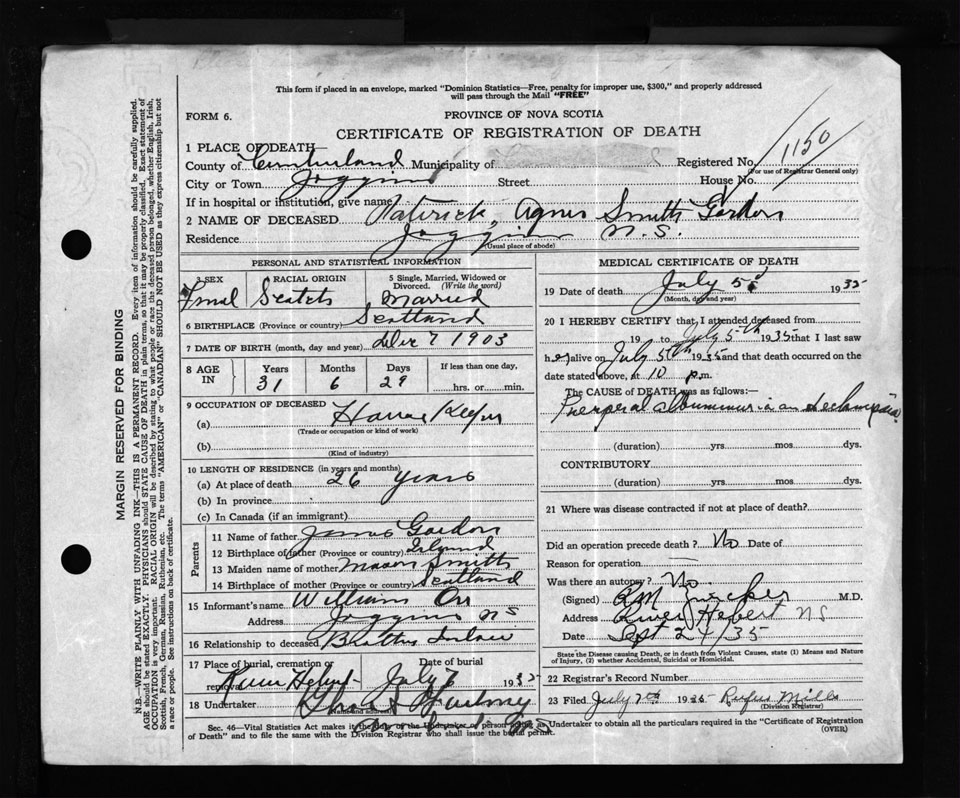 This form if placed in an envelope, marked "Dominion Statistics—Free, penalty for improper use, $300," and properly addressed
will pass through the Mail "FREE"
FORM 6.
PROVINCE OF NOVA SCOTIA
CERTIFICATE OF REGISTRATION OF DEATH
1 PLACE OF DEATH—
County of Cumberland Municipality of Registered No. 1150
(For use of Registrar General only)
City or Town Joggins Street House No.
If in hospital or institution, give name
2 NAME OF DECEASED Patrick, Agnes Smith Gordon
Residence Joggins N.S.
(Usual place of abode)
PERSONAL AND STATISTICAL INFORMATION
3 SEX RACIAL ORIGIN 5 Single, Married, Widowed or
Divorced. (Write the word)
Femal Scotch Married
6 BIRTHPLACE (Province or country) Scotland
7 DATE OF BIRTH (month, day and year) 7 1903
8 AGE IN Years Months Days If less than one day,
31 6 29 hrs. or min.
9 OCCUPATION OF DECEASED
(a) House Keeper
(Trade or occupation or kind of work)
(b)
(Kind of industry)
10 LENGTH OF RESIDENCE (in years and months)
(a) At place of death 26 years
(b) In province
(c) In Canada (if an immigrant)
Parents
11 Name of father James Gordon
12 Birthplace of father (Province or country)
13 Maiden name of mother Smith
14 Birthplace of mother (Province or country) Scotland
15 Informant's name William Orr
Address Joggins NS
16 Relationship to deceased Brother Inlaw
17 Place of burial, cremation or removal Date of burial
River Hebert July 6 1935
18 Undertaker
MEDICAL CERTIFICATE OF DEATH
19 Date of death July 5 1935
(Month, day and year)
20 I HEREBY CERTIFY that I attended deceased from
19 to July 5th 1935 that I last saw
her alive on July 5th 1935 and that death occurred on
date stated above, at 10 p.m.
The CAUSE OF DEATH was as follows:—
Puerperal albuminuria and eclampsia
(duration) yrs. mos. dys.
CONTRIBUTORY
(duration) yrs. mos. dys.
21 Where was disease contracted if not at place of death?
Did an operation precede death? No Date of
Reason for operation
Was there an autopsy? No.
(Signed) M.D.
Address River Hebert NS
Date Sept 2/35
State the Disease causing Death, or in death from Violent Causes, state (1) Means and Nature
of Injury, (2) whether Accidental, Suicidal or Homicidal.
22 Registrar's Record Number
23 Filed July 7th 1935 Rufus Mills
(Division Registrar)
Sec. 46—Vital Statistics Act makes it the duty of the Undertaker or person acting as Undertaker to obtain all the particulars required in the "Certificate of Registration
of Death" and to file the same with the Division Registrar who shall issue the burial permit.
(OVER)
MARGIN RESERVED FOR BINDING
N.B.—WRITE PLAINLY WITH UNFADING INK—THIS IS A PERMANENT RECORD. Every item of information should be carefully supplied.
AGE should be stated EXACTLY. PHYSICIANS should STATE CAUSE OF DEATH in plain terms, so that it may be properly classified. Exact statement of
OCCUPATION is very important. RACIAL ORIGIN will be described by stating to what people or race the deceased person belonged, whether English, Irish,
Scottish, French, German, Russian, Ruthenian, etc. The terms "AMERICAN" or "CANADIAN" SHOULD NOT BE USED as they express citizenship but not
a race or people. See instructions on back of certificate.